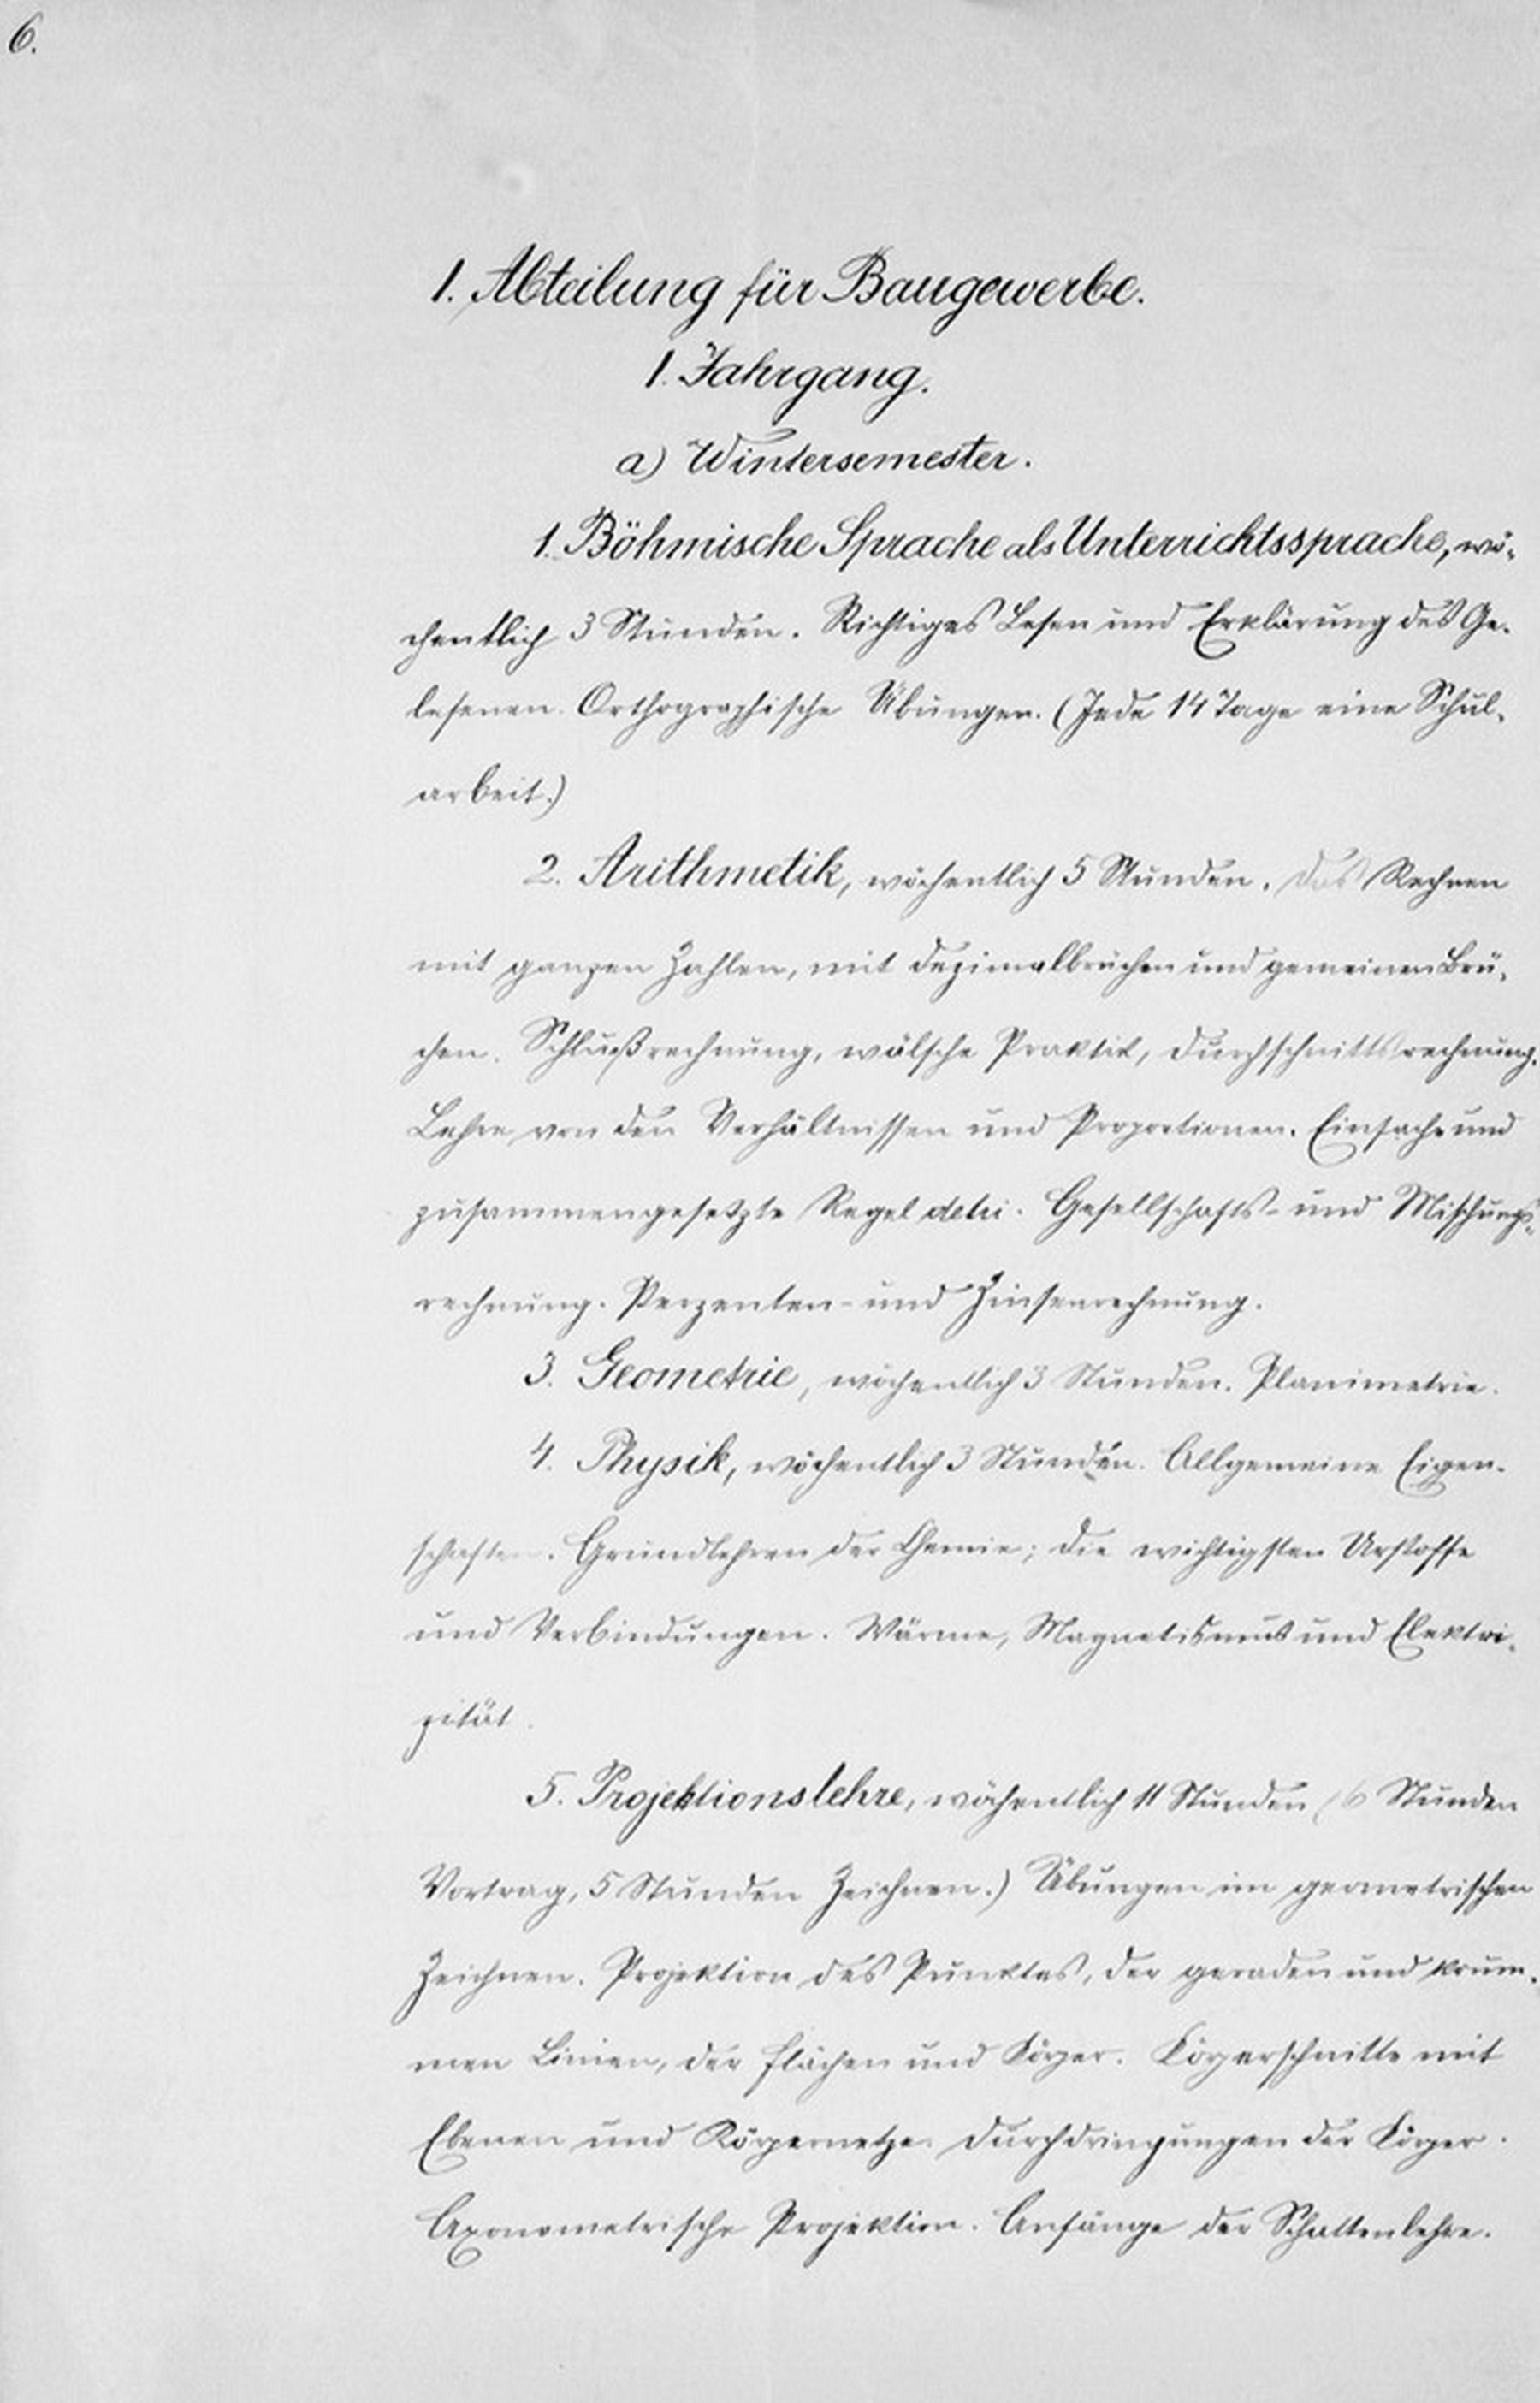 6.
1. Abteilung für Baugewerbe.
1. Jahrgang.
a) Wintersemester.
1. Böhmische Sprache als Unterrichtssprache, wö-
chentlich 3 Stunden. Richtiges Lesen und Erklärung des Ge-
lesenen. Orthographische Übungen. (Jede 14 Tage eine Schul-
arbeit.)
2. Arithmetik, wöchentlich 5 Stunden. Das Rechnen
mit ganzen Zahlen, mit Dezimalbrüchen und gemeinen Brü-
chen. Schlußrechnung, wälsche Praktik, Durchschnittsrechnung.
Lehre von den Verhältnissen und Proportionen. Einfache und
zusammengesetzte Regel detri. Gesellschafts- und Mischungs-
rechnung. Perzenten- und Zinsenrechnung.
3. Geometrie, wöchentlich 3 Stunden. Planimetrie.
4. Physik, wöchentlich 3 Stunden. Allgemeine Eigen-
schaften. Grundlehren der Chemie; die wichtigsten Urstoffe
und Verbindungen. Wärme, Magnetismus und Elektri-
zität.
5. Projektionslehre, wöchentlich 11 Stunden (6 Stunden
Vortrag, 5 Stunden Zeichnen.) Übungen im geometrischen
Zeichnen. Projektion des Punktes, der geraden und krum-
men Linien, der Flächen und Körper. Körperschnitte mit
Ebenen und Körpernetze. Durchdringungen der Körper.
Axonometrische Projektion. Anfänge der Schattenlehre.